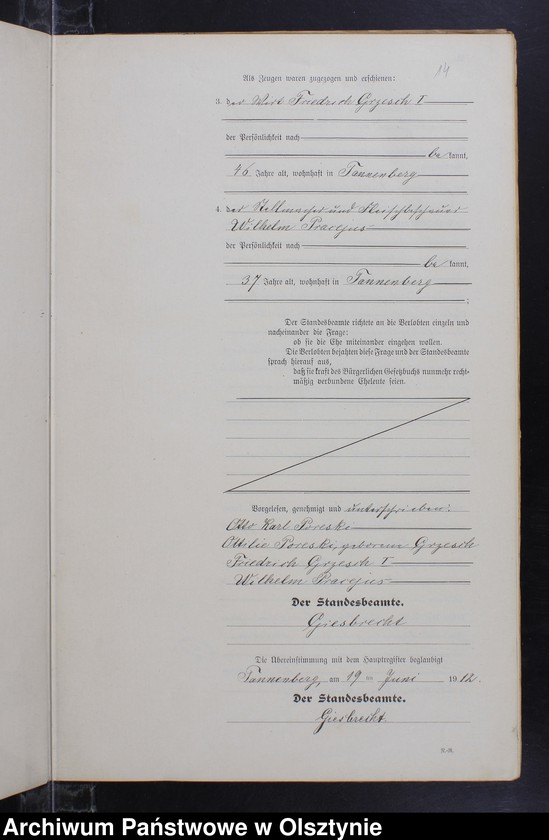 14
Als Zeugen waren zugezogen und erschienen:
3. der Wirt Friedrich Grzesch I
der Persönlichkeit nach
bekannt,
46 Jahre alt, wohnhaft in Tannenberg
4. der Stellmacher und Fleischbeschauer
Wilhelm Pracejus
der Persönlichkeit nach
bekannt,
37 Jahre alt, wohnhaft in Tannenberg
;
Der Standesbeamte richtete an die Verlobten einzeln und
nacheinander die Frage:
ob sie die Ehe miteinander eingehen wollen.
Die Verlobten bejahten diese Frage und der Standesbeamte
sprach hierauf aus,
daß sie kraft des Bürgerlichen Gesetzbuchs nunmehr recht-
mäßig verbundene Eheleute seien.
Vorgelesen, genehmigt und unterschrieben:
Otto Karl Poreski
Ottilie Poreski, geborene Grzesch
Friedrich Grzesch I
Wilhelm Pracejus
Der Standesbeamte.
Giesbrecht
Die Übereinstimmung mit dem Hauptregister beglaubigt
Tannenberg, am 19 ten Juni 1912.
Der Standesbeamte.
Giesbrecht
Archiwum Państwowe w Olsztynie